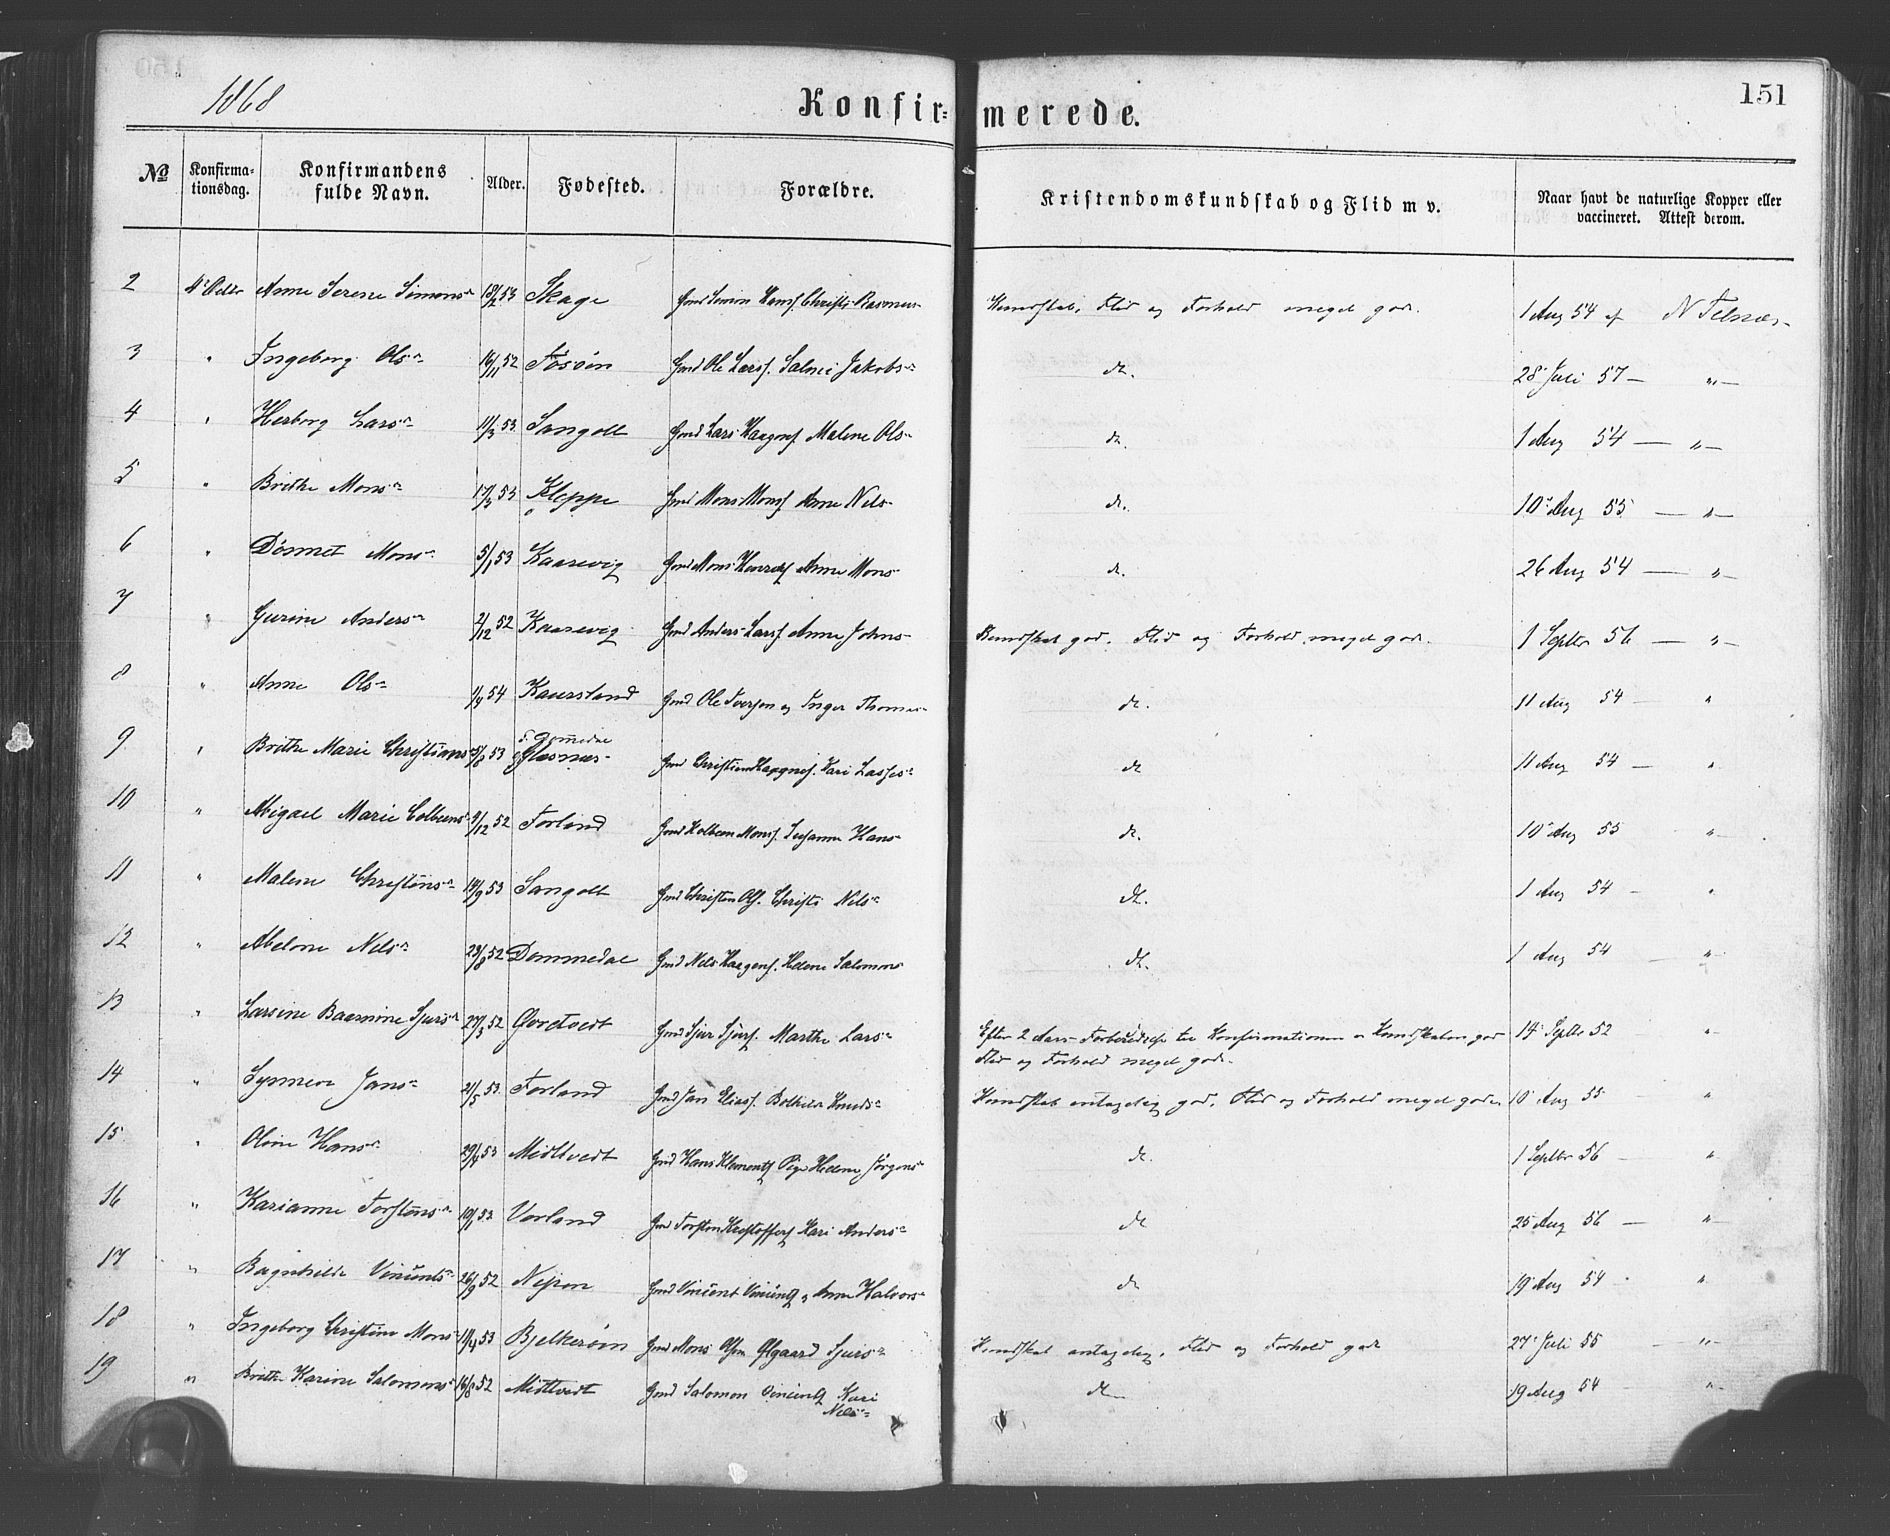 1868
Konfir=merede.
151
No
Konfirma-tionsdag.
Konfirmandens fulde Navn.
Alder.
Fødested.
Forældre.
Kristendomskundskab og Flid m v.
Naar havt de naturlige Kopper eller vaccineret. Attest derom.
2 4 Octbr Anne Serene Simons 18/2 53 Skage Gmd Simon Hansf. Christi Rasmus Kundskab, Flid og Forhold meget godt. 1 Aug 54 af N Telnæs
3 " Ingeborg Ols 16/11 52 Tosøen Gmd Ole Larsf. Salmei Jakobs dt. 28 Juli 57 — "
4 " Herborg Lars 11/3 53 Sangolt Gmd Lars Haagnsf. Malene Ols dt. 1 Aug 54 — "
5 " Brithe Mons 17/3 53 Kleppe Gmd Mons Monsf Anne Nels dt. 10 Aug 55 — "
6 " Dønnet Mons 5/1 53 Kaarevig Gmd Mons Anne Mons dt. 26 Aug 54 — "
7 " Gurine Anders 2/12 52 Kaarevig Gmd Anders Larsf Anne Johns Kundskab god, Flid og Forhold meget godt. 1 Septbr 56 — "
8 " Anne Ols 1/9 54 Kaursland Gmd Ole Iversen og Inger Thomas dt. 11 Aug 54 "
9 " Brithe Marie Christians 5/8 53 Glesnæs Gmd Christian Haagnsf. Kari Lasses dt 11 Aug 54 — "
10 " Abigael Marie Colbens 9/12 52 Forland Gmd Kolben Monsf. Susanne Hans dt. 10 Aug 55 "
11 " Malene Christens 14/9 53 Sangolt Gmd Christen Olsf. Christi Nels dt. 1 Aug 54 — "
12 " Abelone Nels 23/8 52 Dommedal Gmd Nels Haagensf. Helene Salomons dt. 1 Aug 54 — "
13 " Larsine Baarnine Sjurs 27/3 52 Qvetvedt Gmd Sjur Sjursf. Marthe Lars Efter 2 Aars Forberedelse til Konfirmationen er Kundskaben god 14 Septbr 52 "
Flid og Forhold meget godt.
14 " Synneve Jans 21/5 53 Forland Gmd Jan Eliasf. Bothilde Knuds Kundskab antagelig god, Flid og Forhold meget godt. 10 Aug 55 "
15 " Oline Hans 29/4 53 Midttvedt Gmd Hans Klementsf Pige Helene Jørgens dt. 1 Septbr 56 — "
16 " Karianne Torstens 10/1 53 Vorland Gmd Torsten Kristoffersf Kari Anders dt 25 Aug 56 — "
17 " Ragnhilde Vincents 26/9 52 Gmd Vincent Vincentsf og Anne Halvors dt 19 Aug 54 "
18 " Ingeborg Christine Mons 11/4 53 Bjelkerøen Gmd Mons Olsen Ølgaard Sjurs Kundskab antagelig, Flid og Forhold godt 27 Juli 55 — "
19 " Brithe Karine Salomons 16/8 52 Midttvedt Gmd Salomon Vincentsf Kari Nels dt 19 Aug 54 — "